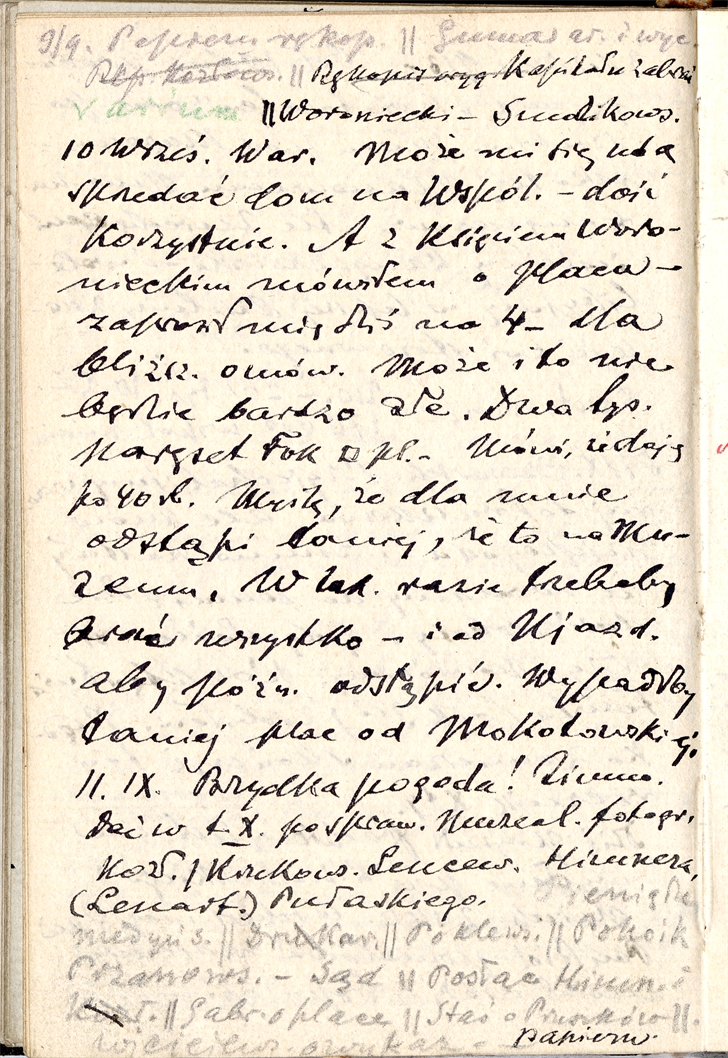 9/9. Papieru rękop. || Gumas ar. i wyc.
Rkp. Kozłows. || Rękopis oryg. Kapitału zabrać
Varium || Woroniecki – Smulikows.
10 Wrześ. War. Może mi się uda
sprzedać dom na Wspól. – dość
korzystnie. A z Księciem Woro-
nieckim mówiłem o placu –
zaprosił mię dziś na 4 – dla
bliższ. omów. Może i to nie
będzie bardzo złe. Dwa tys.
łok □ pł. – Mówi, że dają
po 40 rb. Myślę, że dla mnie
odstąpi taniej, że to na Mu-
zeum. W tak. razie trzebaby
brać wszystko – i od Ujazd.
aby późn. odstąpić. Wypadłby
taniej plac od Mokotowskiej.
11. IX. Brzydka pogoda! Zimno.
Dziś w t. X. po spraw. Muzeal. fotogr.
Kozł. / Krukows. Lencew. Himnera,
(Lenart.) Pułaskiego. Pieniądze
medycis. || Drukar. || Poklews. || Pokoik
Przanows. – Sąd || Posłać Himne
|| Gabr. o place || Staś o Pruszków ||.
wykaz – papieru.